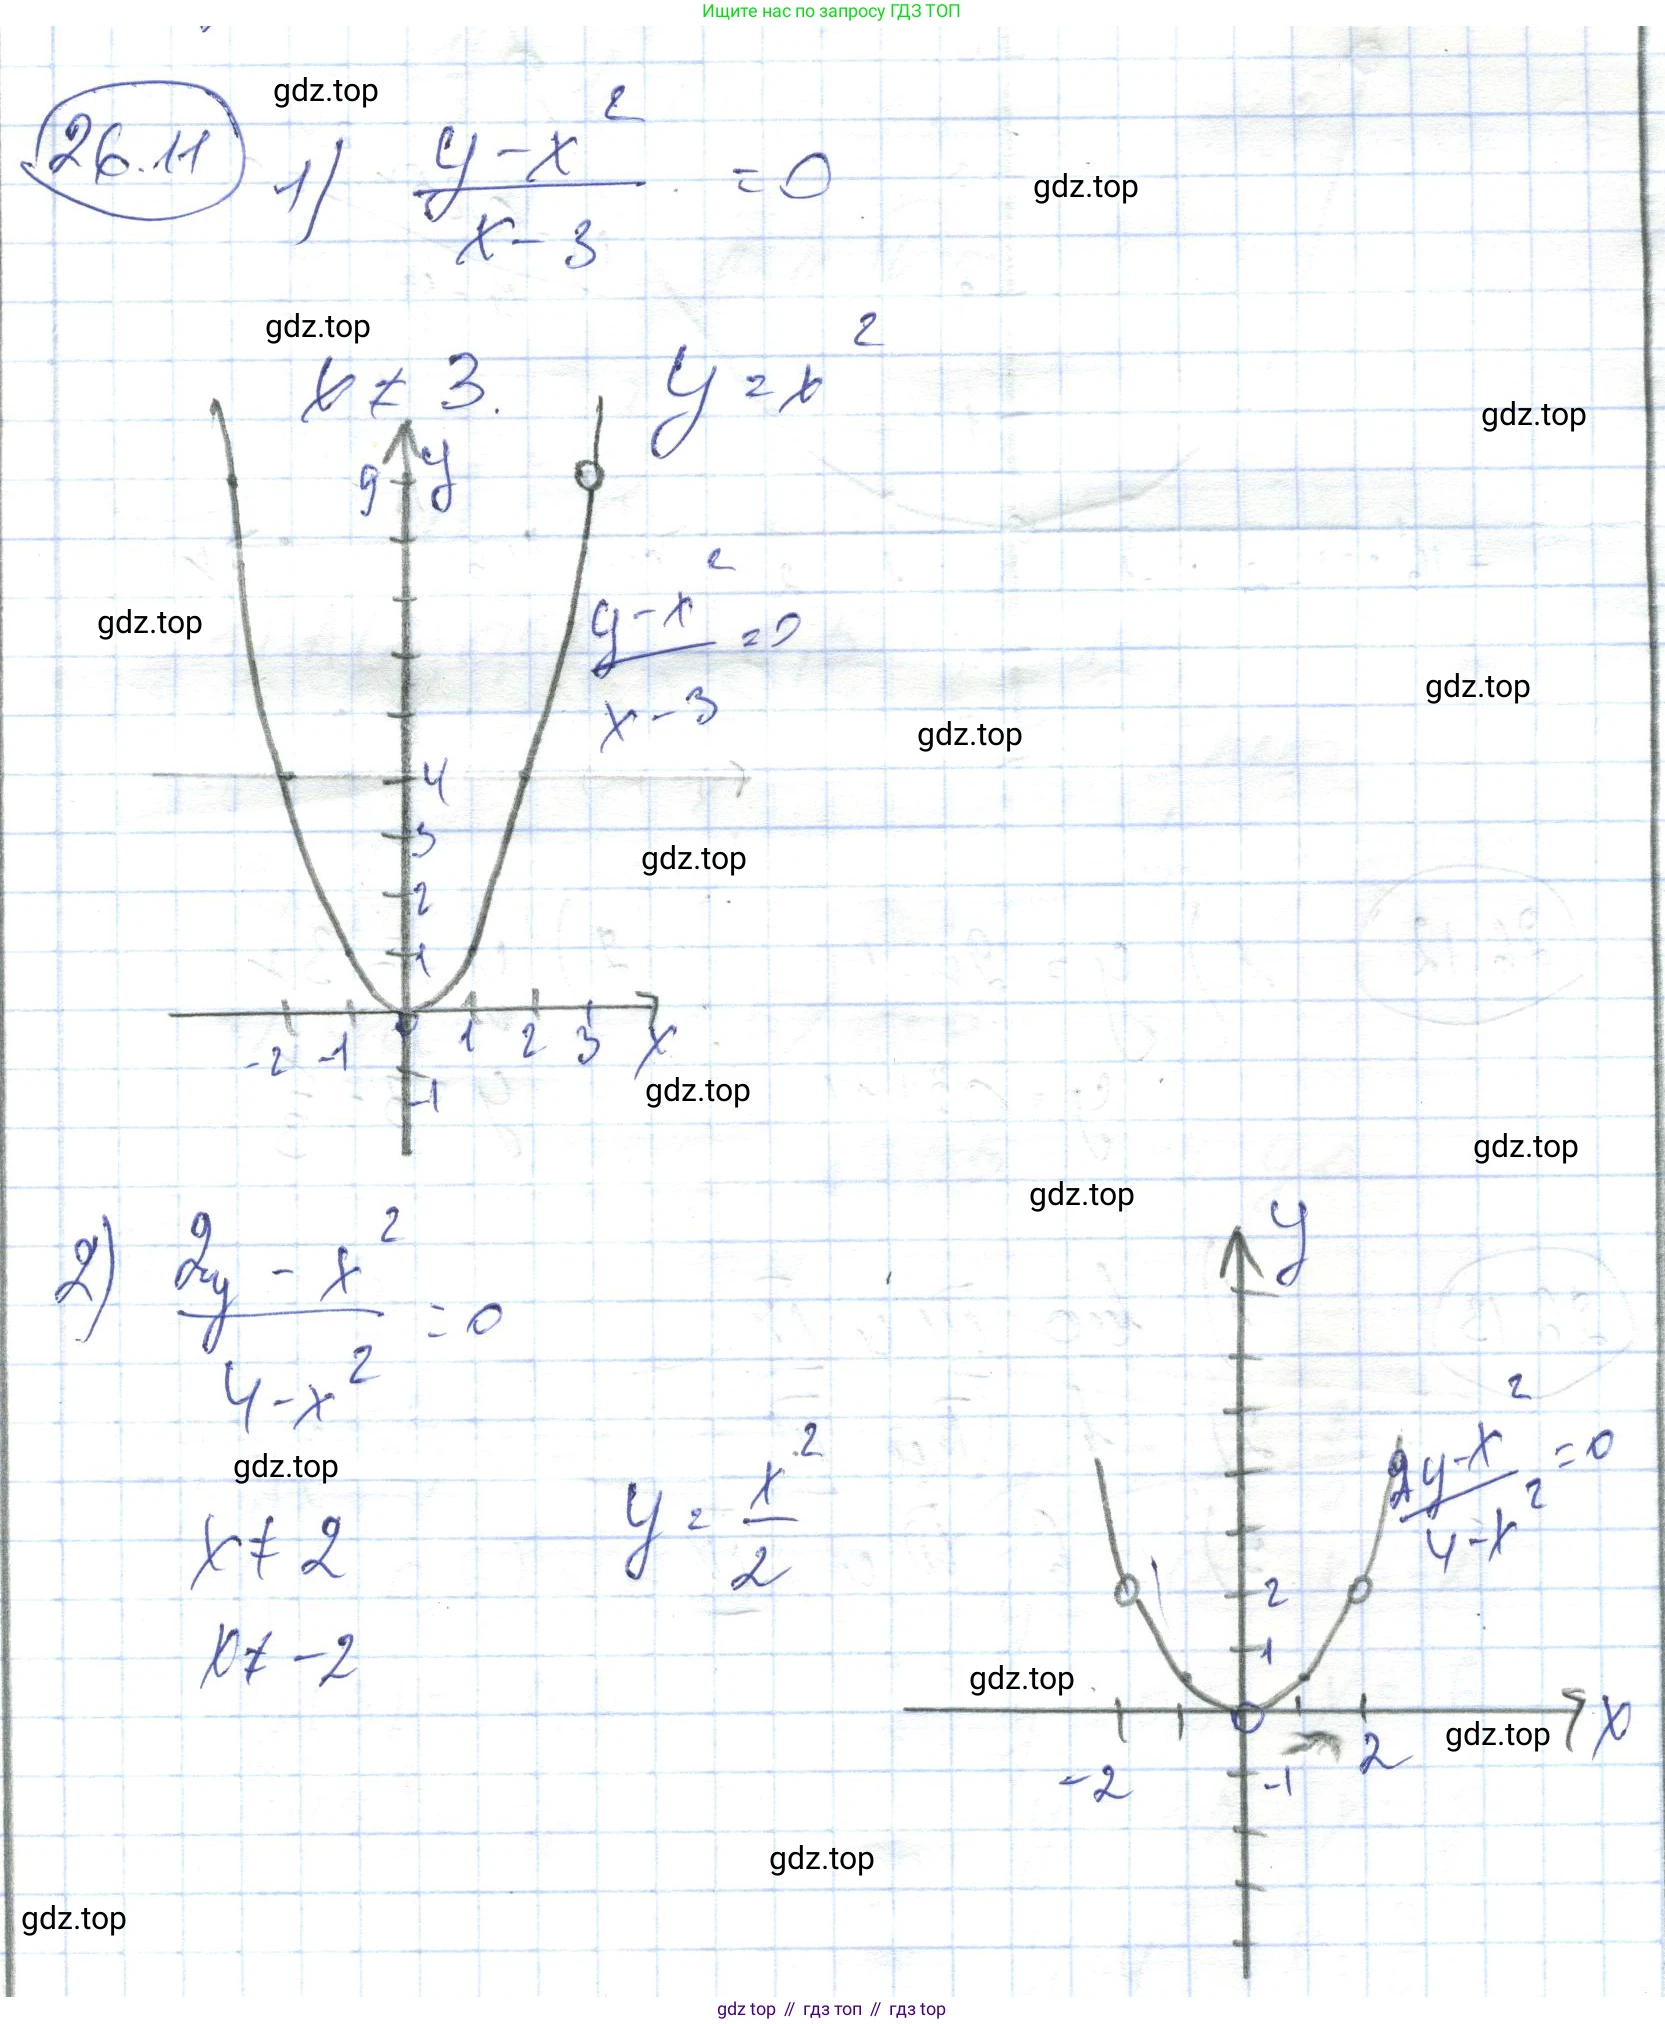 Ищите нас по запросу ГДЗ ТОП
gdz.top
26.11 1) (y - x²)/(x - 3) = 0
gdz.top
gdz.top
x ≠ 3. y = x²
gdz.top
9 y
gdz.top
(y - x²)/(x - 3) = 0
gdz.top
gdz.top
4
3
gdz.top
2
1
0
-2 -1 1 2 3 x
gdz.top
-1
gdz.top
gdz.top
y
2) (2y - x²)/(4 - x²) = 0
(2y - x²)/(4 - x²) = 0
gdz.top
x ≠ 2 y = x²/2
2
1
x ≠ -2
gdz.top
0
gdz.top
x
-2 -1 2
gdz.top
gdz.top
gdz top // гдз топ // гдз top